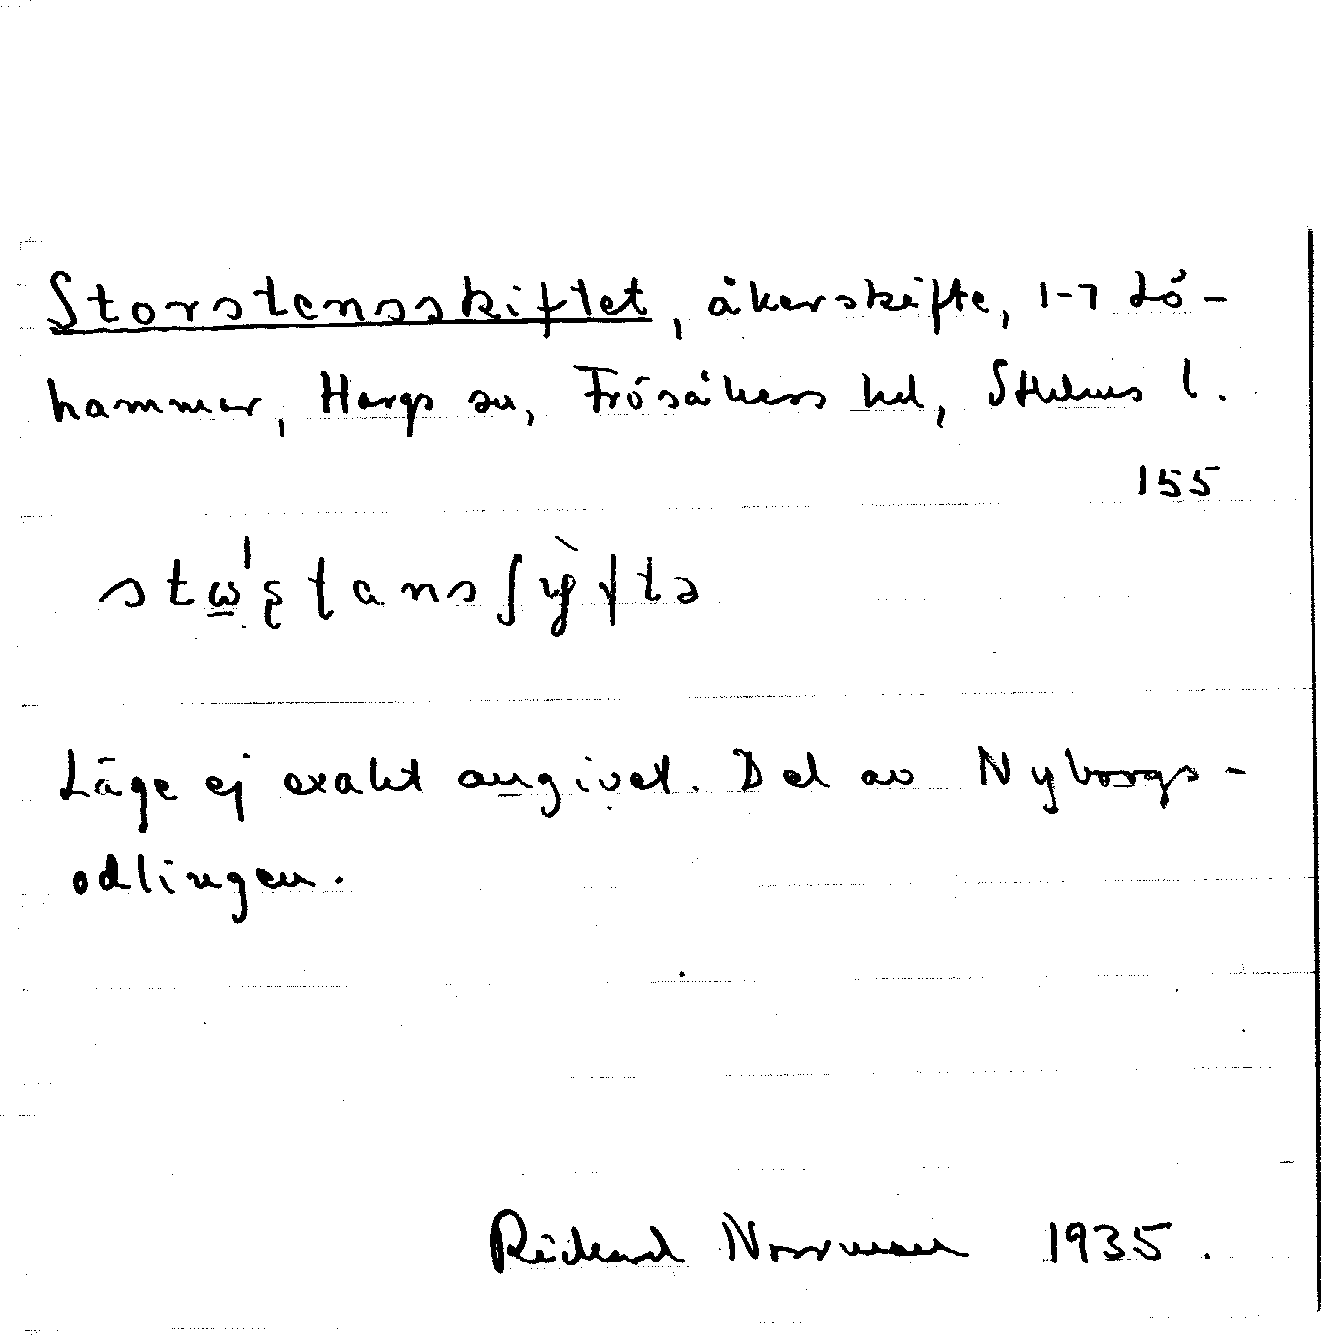 Storstensskiftet, åkerskifte, 1-7 Lö-
hammar, Hargs sn, Frösåkers hd, Sthlms l.
155
Läge ej exakt angivet. Del av Nyborgs-
odlingen.
Rickard Norrman 1935.